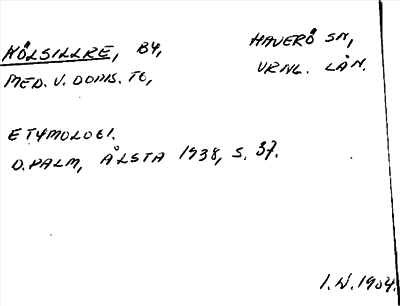 HÖLSILLRE, BY, HAVERÖ SN,
MED. V. DOMS. TG, VRNL. LÄN.
ETYMOLOGI.
D. PALM, ÅLSTA 1938, S. 37.
I.W.1904.